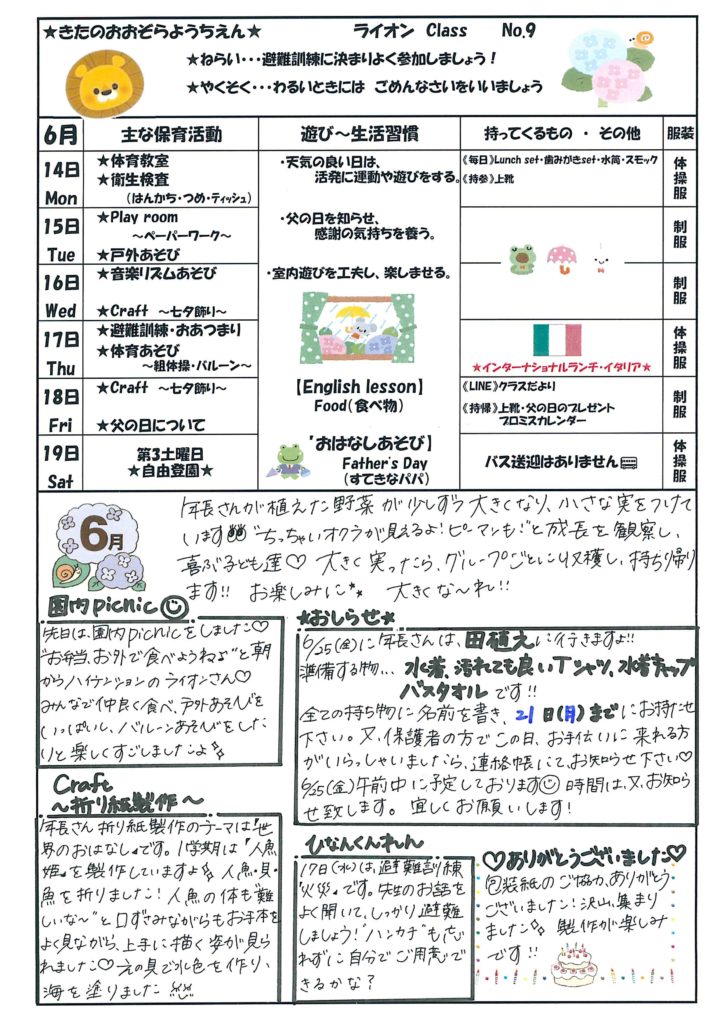 ★きたのおおぞらようちえん★
ライオン Class No.9
★ねらい・・・避難訓練に決まりよく参加しましょう！
★やくそく・・・わるいときには ごめんなさいをいいましょう
6月 主な保育活動 遊び～生活習慣 持ってくるもの ・ その他 服装
14日 Mon
★体育教室
★衛生検査
（はんかち・つめ・ティッシュ）
・天気の良い日は、
活発に運動や遊びをする。
《毎日》Lunch set・歯みがきset・水筒・スモック
《持参》上靴
体操服
15日 Tue
★Play room
～ペーパーワーク～
★戸外あそび
・父の日を知らせ、
感謝の気持ちを養う。
制服
16日 Wed
★音楽リズムあそび
★Craft ～七夕飾り～
・室内遊びを工夫し、楽しませる。
制服
17日 Thu
★避難訓練・おあつまり
★体育あそび
～組体操・バルーン～
★インターナショナルランチ・イタリア★
体操服
18日 Fri
★Craft ～七夕飾り～
★父の日について
【English lesson】
Food（食べ物）
《LINE》クラスだより
《持帰》上靴・父の日のプレゼント
プロミスカレンダー
制服
19日 Sat
第3土曜日
★自由登園★
おはなしあそび】
Father's Day
（すてきなパパ）
バス送迎はありません
体操服
6月
年長さんが植えた野菜が少しずつ大きくなり、小さな実をつけて
います "ちっちゃいオクラが見えるよ！ピーマンも！"と成長を観察し、
喜ぶ子ども達♡ 大きく実ったら、グループごとに収穫し、持ち帰り
ます!! お楽しみに 大きくな～れ!!
園内picnic
先日は、園内picnicをしました♡
"お弁当、お外で食べようねぇ"と朝
からハイテンションのライオンさん♡
みんなで仲良く食べ、戸外あそびを
いっぱいし、バルーンあそびをした
りと楽しくすごしましたよ
★おしらせ★
6/25(金)に年長さんは、田植えに行きますよ!!
準備する物... 水着、汚れても良いTシャツ、水着キャップ
バスタオルです!!
全ての持ち物に名前を書き、21日(月)までにお持たせ
下さい。又、保護者の方でこの日、お手伝いに来れる方
がいらっしゃいましたら、連絡帳にて、お知らせ下さい♡
6/25(金)午前中に予定しております 時間は、又、お知ら
せ致します。宜しくお願いします！
Craft
～折り紙製作～
年長さん折り紙製作のテーマは『世
界のおはなし』です。1学期は『人魚
姫』を製作していますよ 人魚・貝・
魚を折りました！人魚の体も"難
しいな～"と口ずさみながらもお手本を
よく見ながら、上手に描く姿が見ら
れました♡ 絵の具で水色を作り、
海を塗りました
ひなんくんれん
17日(水)は、避難訓練
『火災』です。先生のお話を
よく聞いて、しっかり避難
しましょう！"ハンカチ"も忘
れずに自分でご用意で
きるかな？
♡ありがとうございました♡
包装紙のご協力、ありがとう
ございました！沢山、集まり
ました 製作が楽しみ
です!!